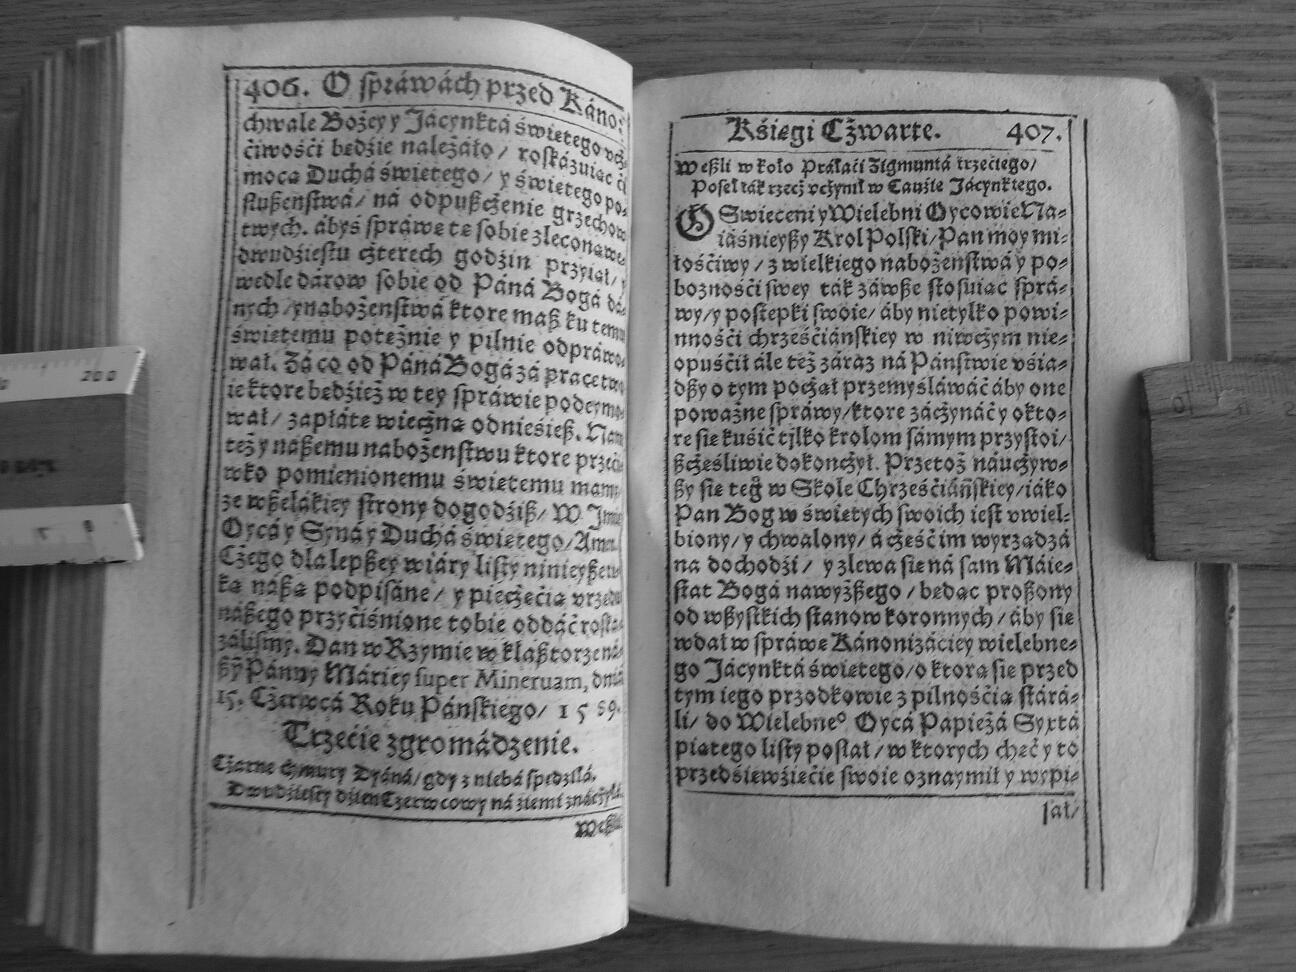 406. O spráwách przed Káno⸗
chwale Bożey y Jácynktá świętego vcż⸗
ćiwośći będźie należáło / roskázuiąc ći
mocą Duchá świętego / y świętego po⸗
słußeństwá / ná odpußcżenie grzechow
twych. ábyś spráwę tę sobie zleconą we
dwudźiestu cżterech godźin przyiął / y
wedle dárow sobie od Páná Bogá dá⸗
nych / y nabożeństwá ktore maß ku temu
świętemu potężnie y pilnie odpráwo⸗
wał. Zá co od Páná Bogá zá pracę two
ię ktore będźież w tey spráwie podeymo⸗
wał / zapłátę wiecżną odnieśieß. Nam
też y náßemu nabożeństwu ktore przeći⸗
wko pomienionemu świętemu mamy
ze wßelákiey strony dogodźiß / W Jmię
Oycá y Syná y Duchá świętego / Amen.
Cżego dla lepßey wiáry listy ninieyße rę⸗
ką náßą podpisáne / y piecżęćią vrzędu
náßego przyćiśnione tobie oddáć roská⸗
zálismy. Dan w Rzymie w klaßtorze ná⸗
ßẏ Pánny Máriey super Mineruam, dniá
15. Cżerwcá Roku Páńskiego / 1589.
Trzećie zgromádzenie.
Cżarne chmury Dyáná / gdy z niebá spędźiłá,
Dwudźiesty dźień Cżerwcowy ná źiemi znácżyłá.
Weßli
Kśięgi Cżwarte. 407.
Weßli w koło Práłaći Zigmuntá trzećiego /
Poseł ták rzecż vcżynił w Cauźie Jácynktego.
OSwieceni y Wielebni Oycowie Na⸗
iáśnieyßy Krol Polski / Pan moy mi⸗
łośćiwy / z wielkiego nabożeństwá y po⸗
bożnośći swey ták záwße stosuiąc sprá⸗
wy / y postępki swoie / áby nietylko powi⸗
nnośći chrześćiáńskiey w niwcżym nie⸗
opuśćił ále też záraz ná Páństwie vśia⸗
dßy o tym pocżął przemyśláwáć áby one
poważne spráwy / ktore zácżynáć y o kto⸗
re się kuśić tylko krolom sámym przystoi /
ßcżęśliwie dokońcżył. Przetoż náucżyw⸗
ßy się teg° w Skole Chrześćiáńskiey / iáko
Pan Bog w świętych swoich iest vwiel⸗
biony / y chwalony / á cżęść im wyrządzá
na dochodźi / y zlewa się ná sam Máie⸗
stat Bogá nawyżßego / będąc proßony
od wßystkich stanow koronnych / áby się
wdał w spráwę Kánonizáciey wielebne⸗
go Jácynktá świętego / o ktorą się przed
tym iego przodkowie z pilnośćią stárá⸗
li / do Wielebne° Oycá Papieżá Syxtá
piątego listy posłał / w ktorych chęć y to
przedśiewźięćie swoie oznaymił y wypi⸗
sał /